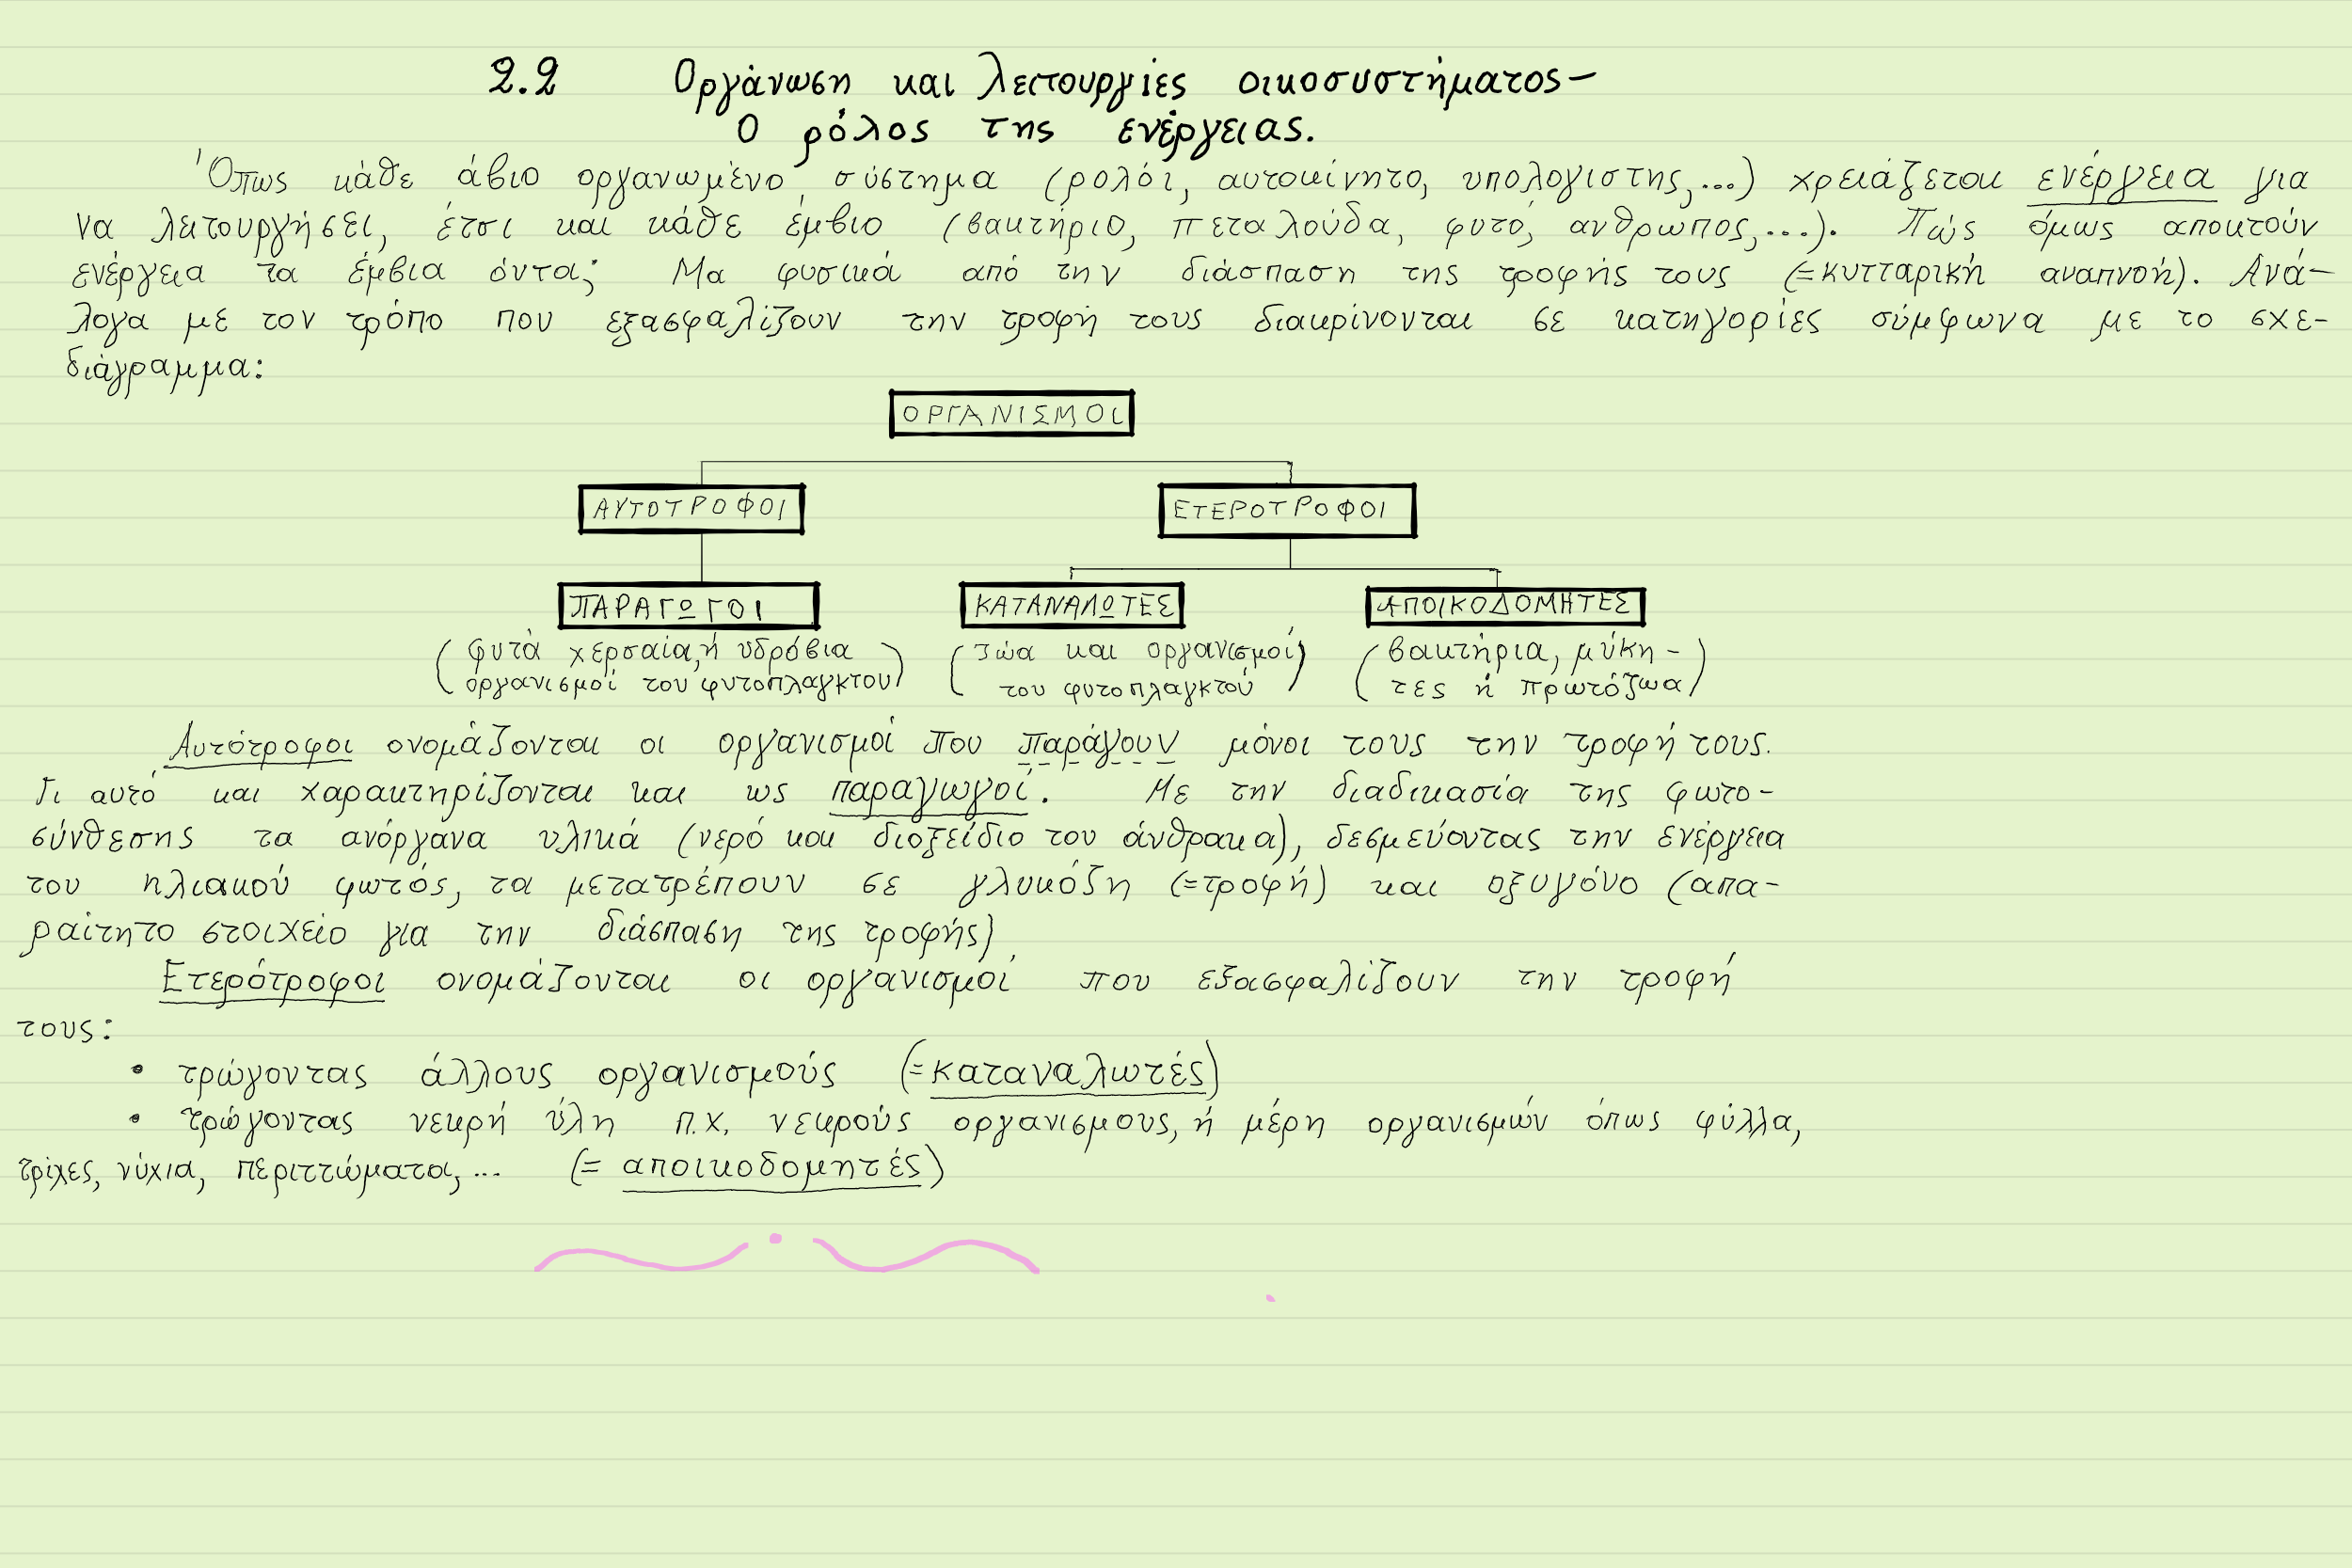 2.2 Οργάνωση και λειτουργίες οικοσυστήματος-
Ο ρόλος της ενέργειας.
Όπως κάθε άβιο οργανωμένο σύστημα (ρολόι, αυτοκίνητο, υπολογιστης,...) χρειάζεται ενέργεια για
να λειτουργήσει, έτσι και κάθε έμβιο (βακτήριο, πεταλούδα, φυτό, ανθρωπος,...). Πώς όμως αποκτούν
ενέργεια τα έμβια όντα; Μα φυσικά από την διάσπαση της τροφής τους (=κυτταρική αναπνοή). Ανά-
λογα με τον τρόπο που εξασφαλίζουν την τροφή τους διακρίνονται σε κατηγορίες σύμφωνα με το σχε-
διάγραμμα:
ΟΡΓΑΝΙΣΜΟΙ
ΑΥΤΟΤΡΟΦΟΙ ΕΤΕΡΟΤΡΟΦΟΙ
ΠΑΡΑΓΩΓΟΙ ΚΑΤΑΝΑΛΩΤΕΣ ΑΠΟΙΚΟΔΟΜΗΤΕΣ
(φυτά χερσαία,ή υδρόβια (ζώα και οργανισμοί) (βακτήρια, μύκη-
οργανισμοί του φυτοπλαγκτου) του φυτοπλαγκτού τες ή πρωτόζωα)
Αυτότροφοι ονομάζονται οι οργανισμοί που παράγουν μόνοι τους την τροφή τους.
Γι αυτό και χαρακτηρίζονται και ως παραγωγοί. Με την διαδικασία της φωτο-
σύνθεσης τα ανόργανα υλικά (νερό και διοξείδιο του άνθρακα), δεσμεύοντας την ενέργεια
του ηλιακού φωτός, τα μετατρέπουν σε γλυκόζη (=τροφή) και οξυγόνο (απα-
ραίτητο στοιχείο για την διάσπαση της τροφής)
Ετερότροφοι ονομάζονται οι οργανισμοί που εξασφαλίζουν την τροφή
τους:
• τρώγοντας άλλους οργανισμούς (=καταναλωτές)
• τρώγοντας νεκρή ύλη π.χ. νεκρούς οργανισμους, ή μέρη οργανισμών όπως φύλλα,
τρίχες, νύχια, περιττώματα,... (= αποικοδομητές)